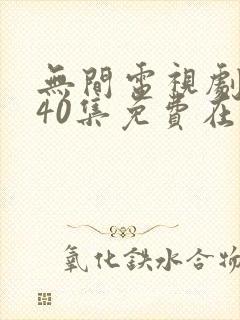 無間電視劇
40集免費在
氧化鉄水合物